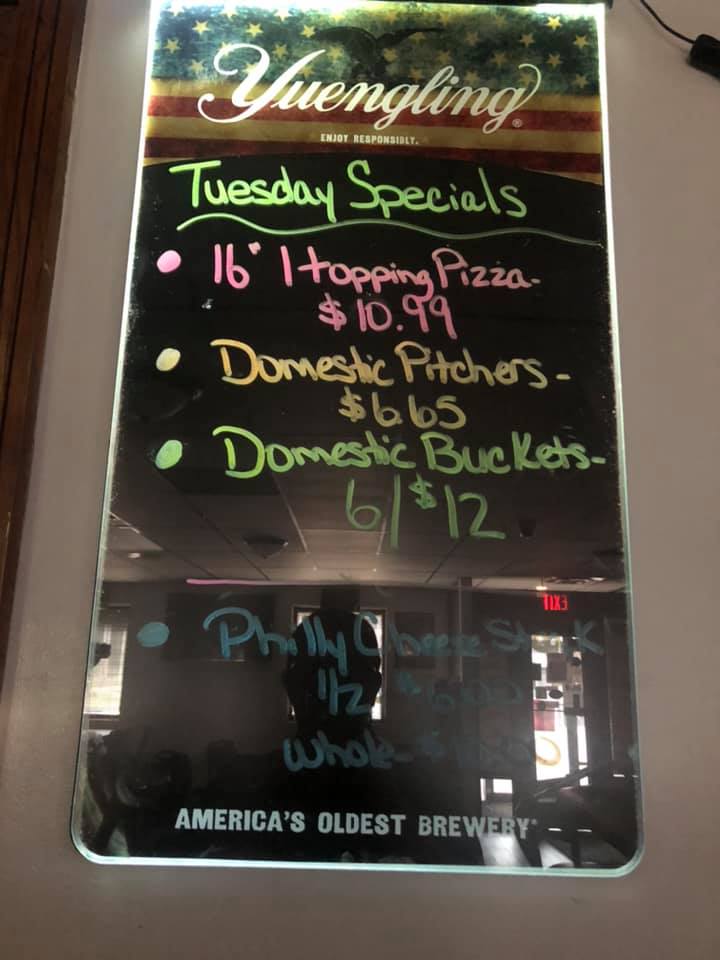 Yuengling®
ENJOY RESPONSIBLY.
Tuesday Specials
• 16" 1 topping Pizza-
$10.99
• Domestic Pitchers-
$6.65
• Domestic Buckets-
6/$12
EXIT
• Philly Cheese Steak
1/2 $6.00
Whole-
AMERICA'S OLDEST BREWERY®